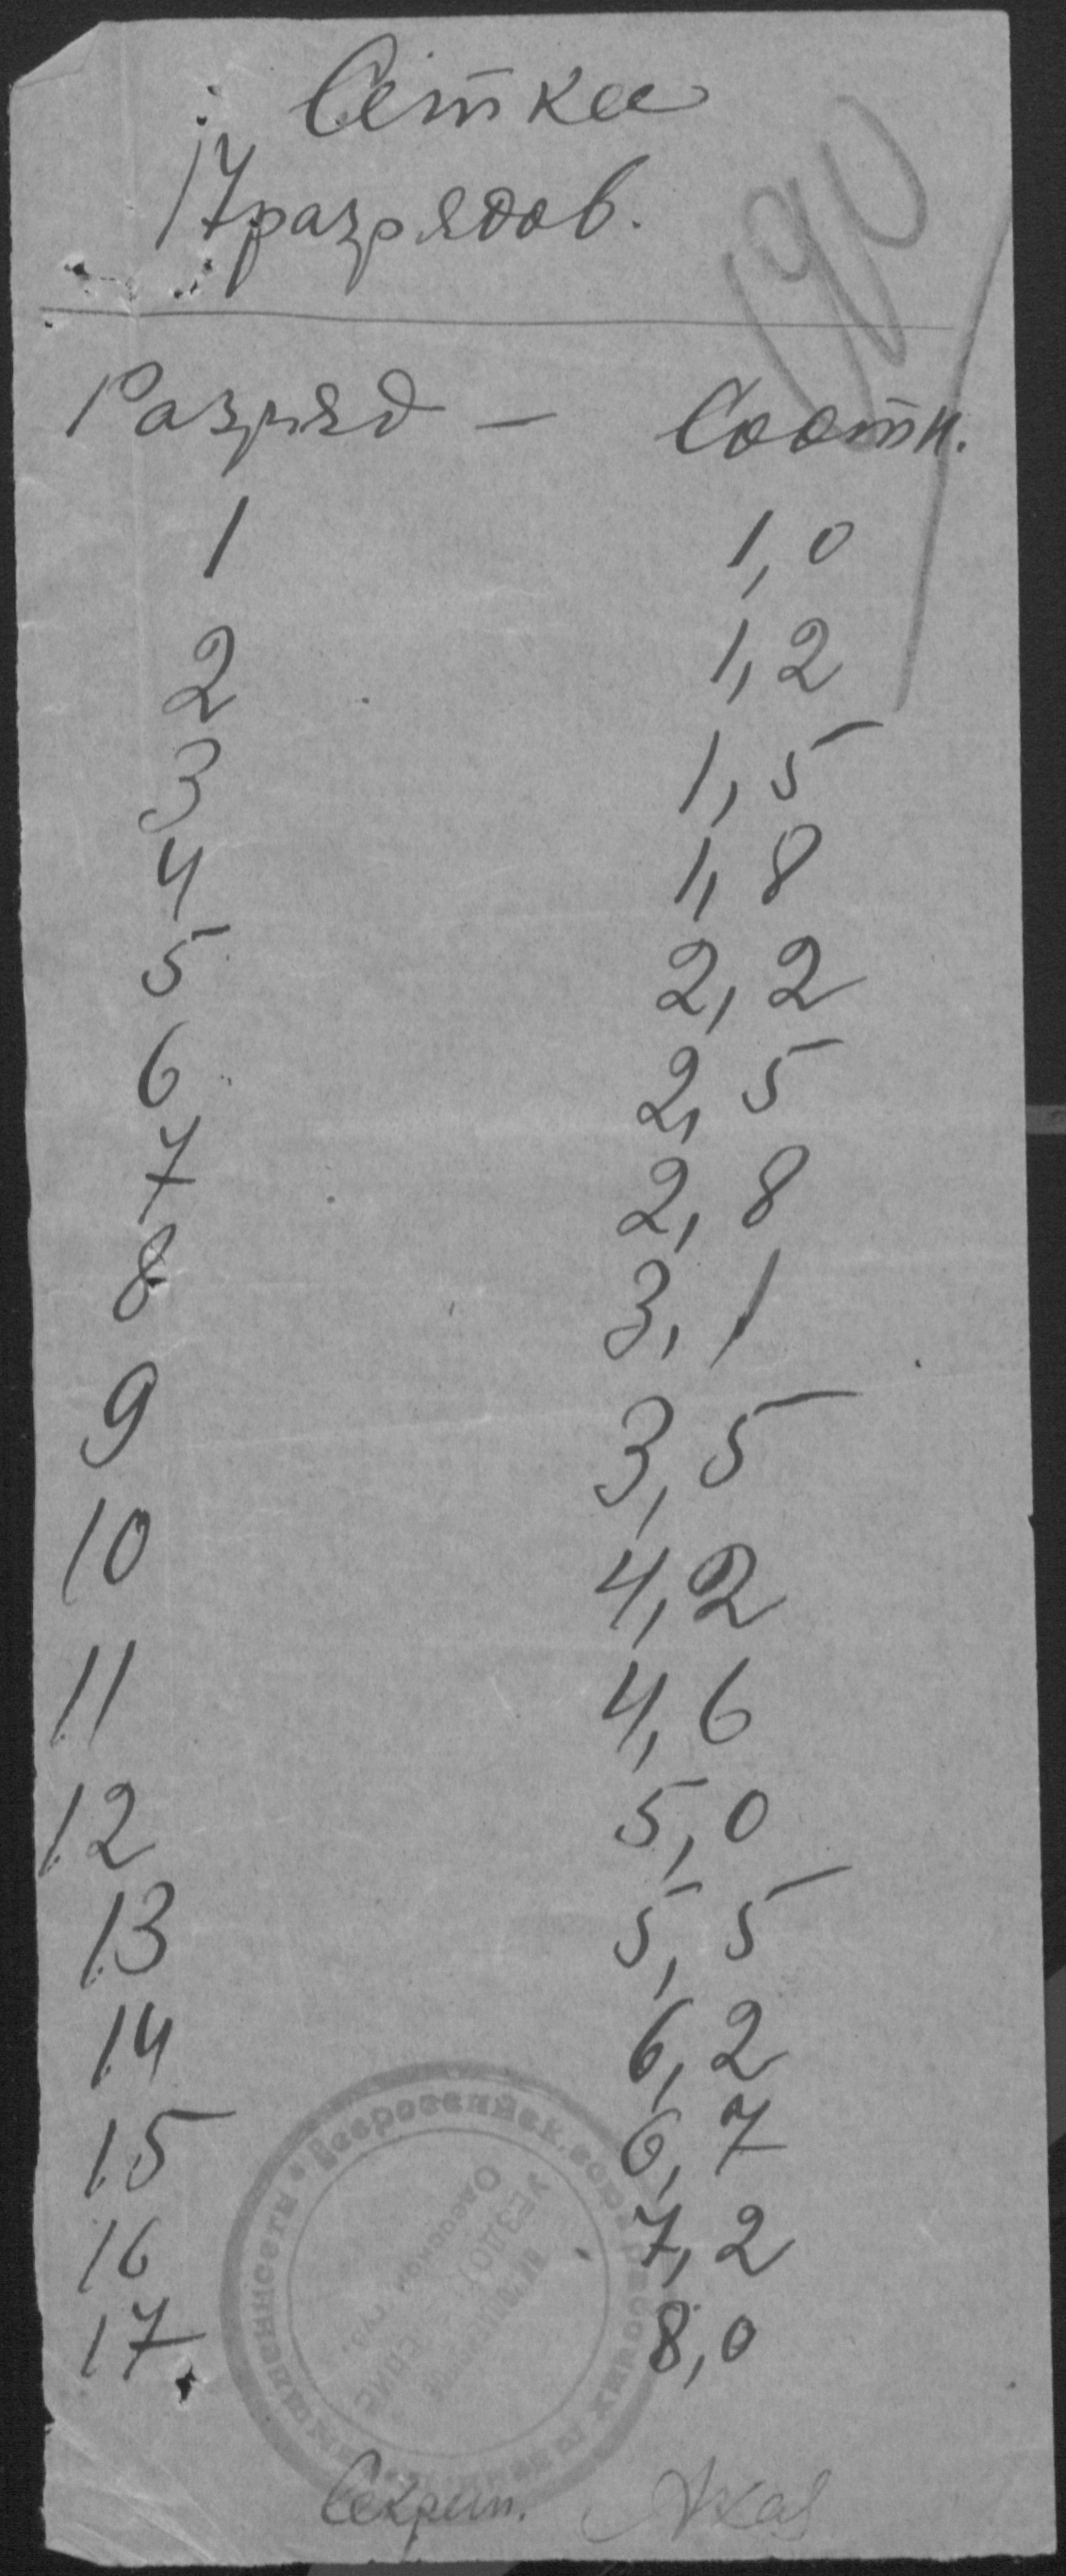 Сетка
17 разрядов.
190
Разряд — Соотн.
1 1,0
2 1,2
3 1,5
4 1,8
5 2,2
6 2,5
7 2,8
8 3,1
9 3,5
10 4,2
11 4,6
12 5,0
13 5,5
14 6,2
15 6,7
16 7,2
17. 8,0
Секрет.